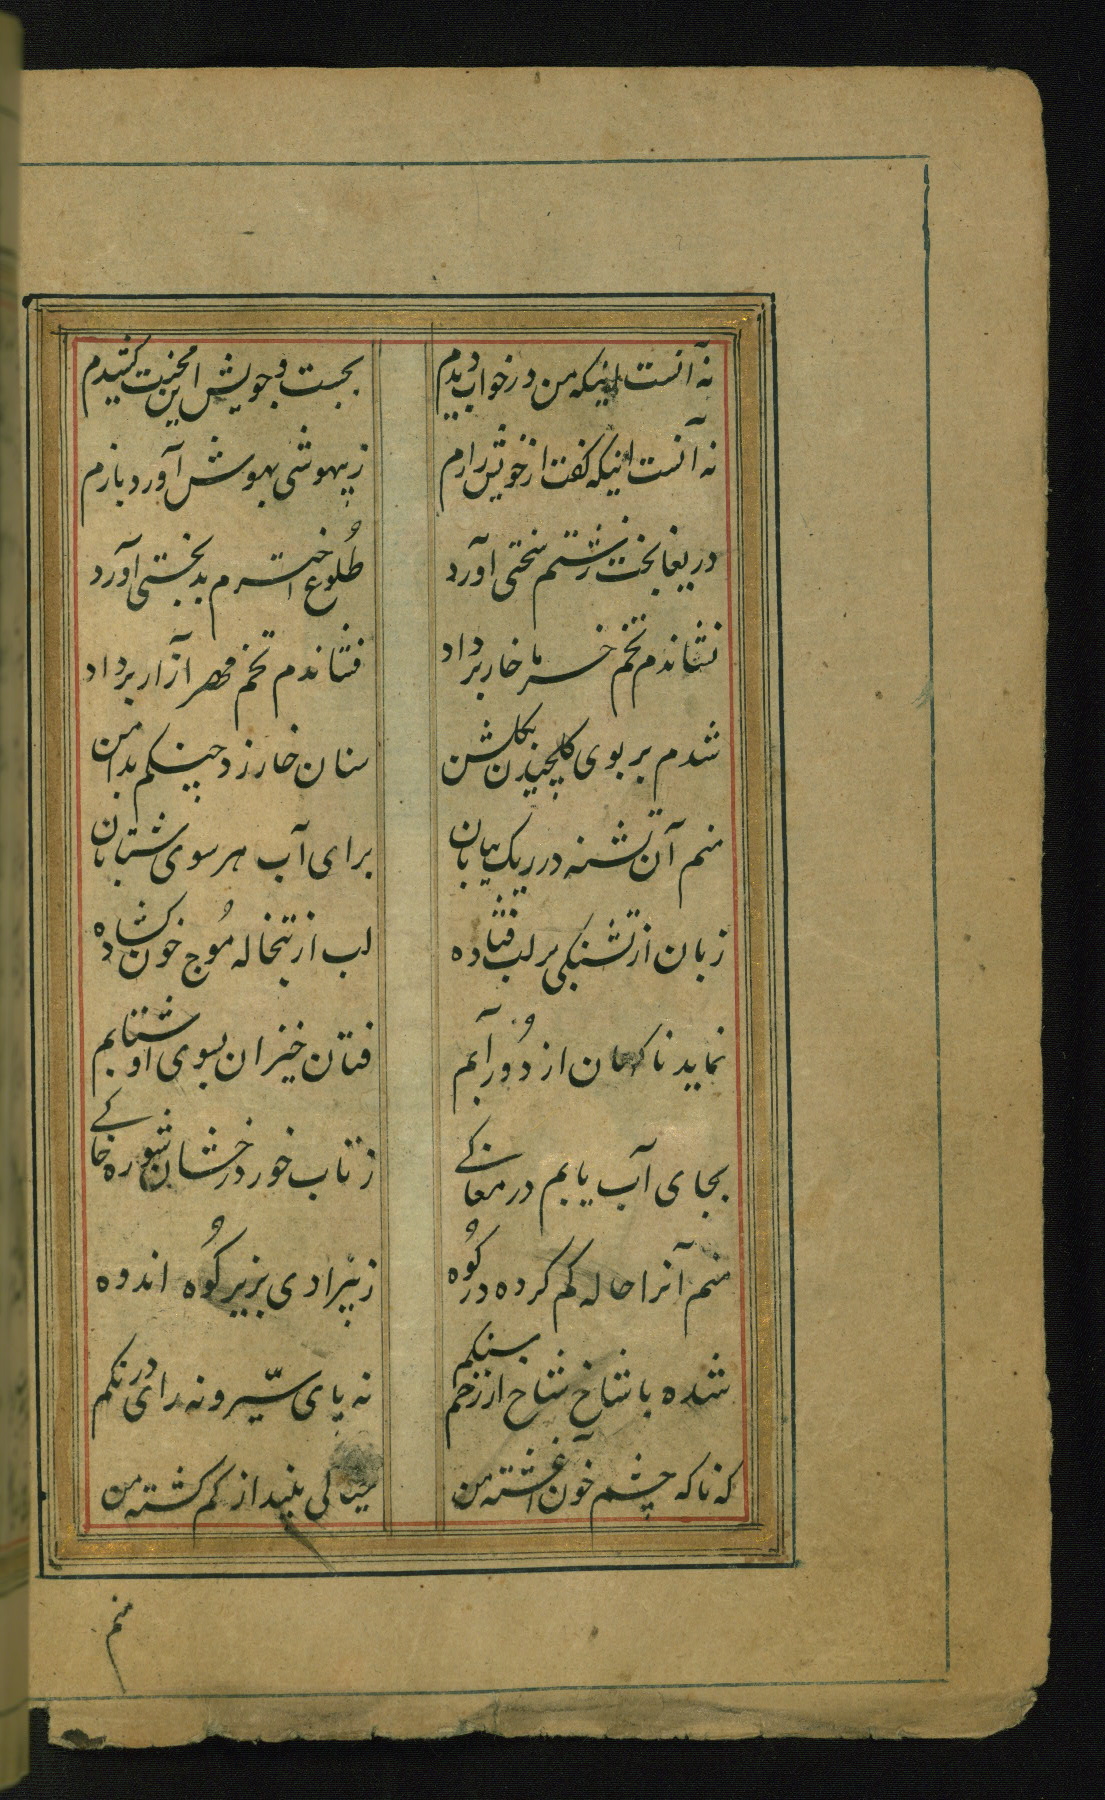 نه آنست اینکه من در خواب دیدم بجست و جویش این محنت کشیدم
نه آنست اینکه گفت از خویش رازم ز بیهوشی بهوش آورد بازم
دریغا بخت زشتم سختی آورد طلوع اخترم بدبختی آورد
نشاندم تخم خرما خار بر داد فشاندم تخم مهر آزار بر داد
شدم بر بوی گلچیدن بگلشن سنان خار زد چنگم بدامن
منم آن تشنه در ریک بیابان برای آب هر سوی شتابان
زبان از تشنگی بر لب فتاده لب از تبخاله موج خون گشاده
نماید ناگهان از دور آبم فتان خیزان بسوی او شتابم
بجای آب یابم در مغاکے ز تاب خور درخشان شوره خاکے
منم آنرا حاله گم کرده در کوه ز بیزادی بزیر کوه اندوه
شده با شاخ شاخ از زخم سنگم نه پای سیر و نه رای درنگم
که ناکه چشم خون آغشته من خیالی بیند از گم گشته من
منم